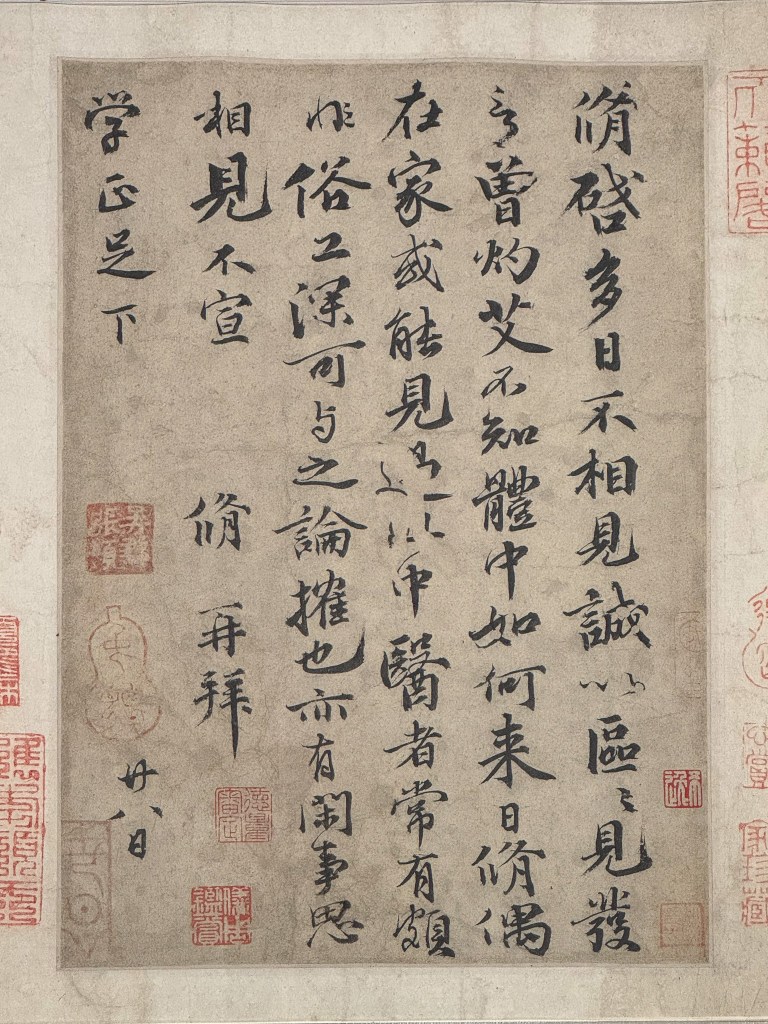 脩啓多日不相見誠以區々見發
言曾灼艾不知體中如何来日脩偶
在家或能見過此中醫者常有頗
非俗工深可与之論搉也亦有閑事思
相見不宣 脩再拜
学正足下 廿八日